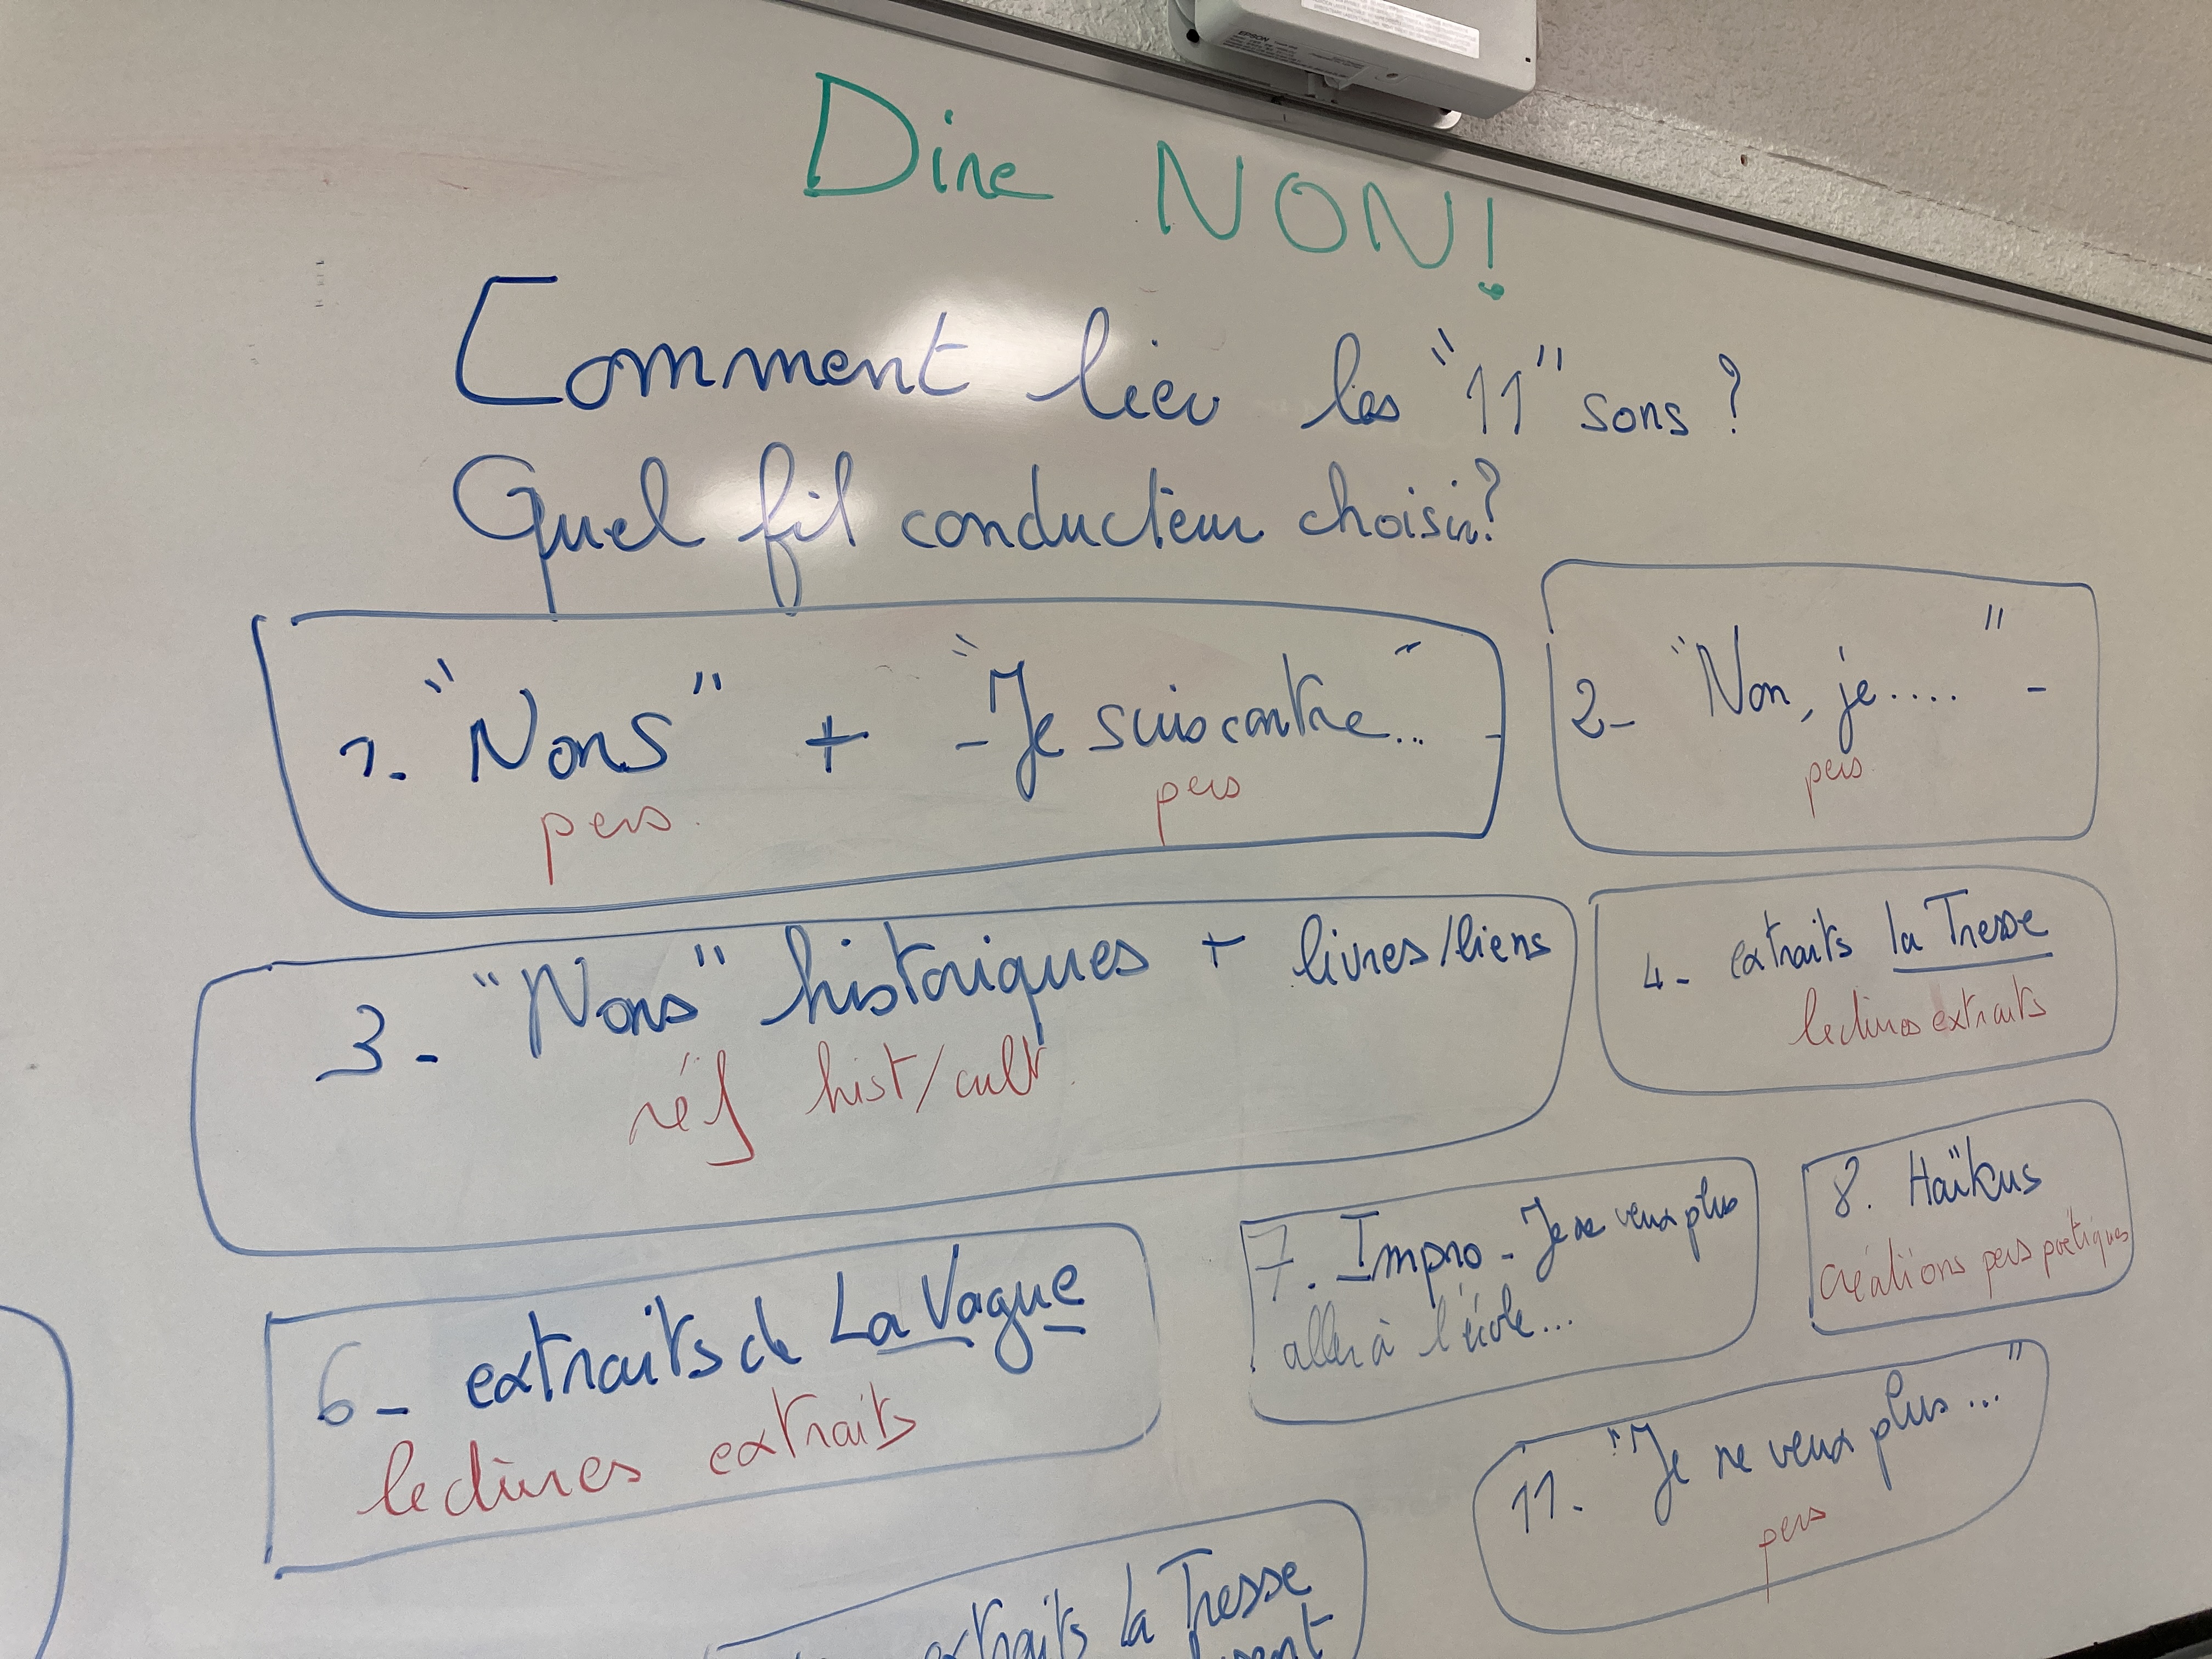 EPSON
Dire NON!
Comment lier les "11" sons ?
Quel fil conducteur choisir?
1. "Nons" + - "Je suis contre..." -
pers. pers
2- "Non, je....." -
pers.
3- "Nons" historiques + livres/liens
réf hist/cult.
4- extraits la Tresse
lectures extraits
6- extraits de La Vague
lectures extraits
7. Impro - Je ne veux plus
aller à l'école...
8. Haïkus
créations pers poétiques
11- "Je ne veux plus..."
pers
extraits la Tresse